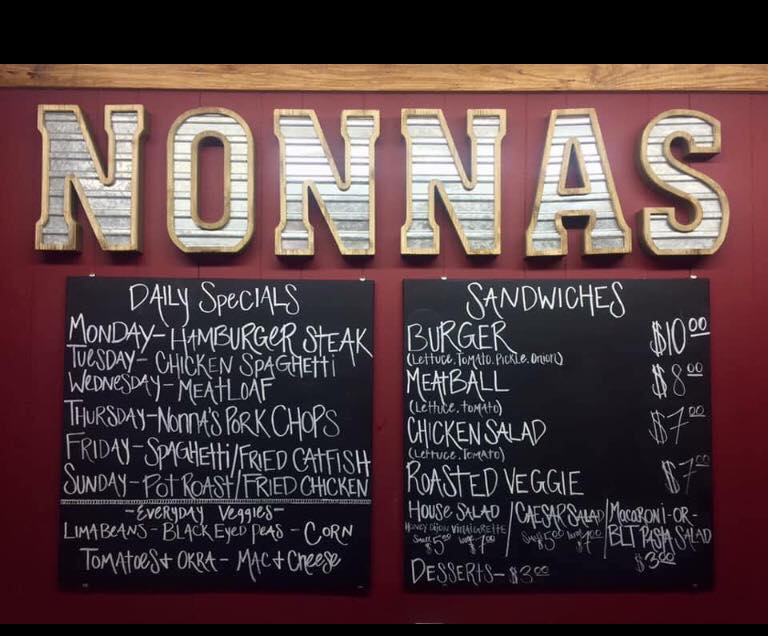 NONNAS
DAILY SPECIALS
MONDAY-HAMBURGER STEAK
TUESDAY- CHICKEN SPAGHETTI
WEDNESDAY-MEATLOAF
THURSDAY-NONNA'S PORK CHOPS
FRIDAY-SPAGHETTI/FRIED CATFISH
SUNDAY-POT ROAST/FRIED CHICKEN
-EVERYDAY VEGGIES-
LIMA BEANS - BLACK EYED PEAS - CORN
TOMATOES & OKRA - MAC & CHEESE
SANDWICHES
BURGER $10.00
(LETTUCE. TOMATO. PICKLE. ONION)
MEATBALL $8.00
(LETTUCE. TOMATO)
CHICKEN SALAD $7.00
(LETTUCE. TOMATO)
ROASTED VEGGIE $7.00
HOUSE SALAD / CAESAR SALAD / MACARONI-OR-
HONEY DIJON VINAIGRETTE BLT PASTA SALAD
SMALL $5.00 LARGE $7.00 SMALL $5.00 LARGE $7.00 $3.00
DESSERTS- $3.00